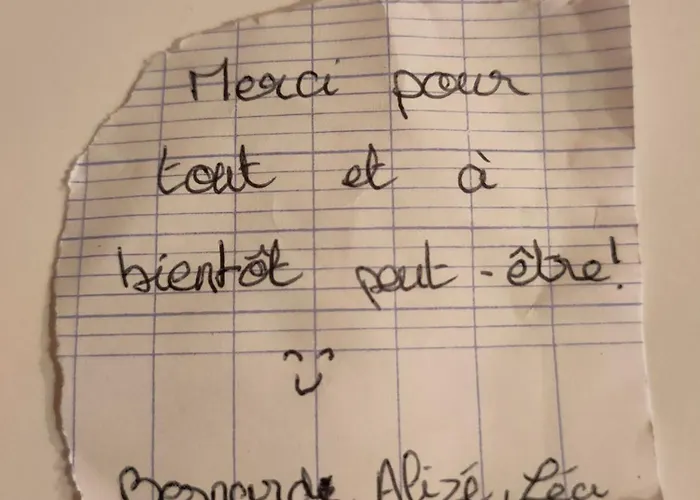 Merci pour
tout et à
bientôt peut-être!
Alizé, Léa